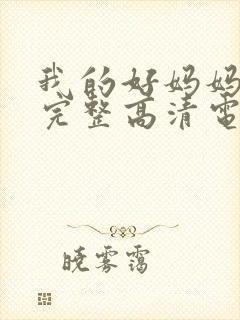 我的好妈妈
完整高清电
晓雾霭